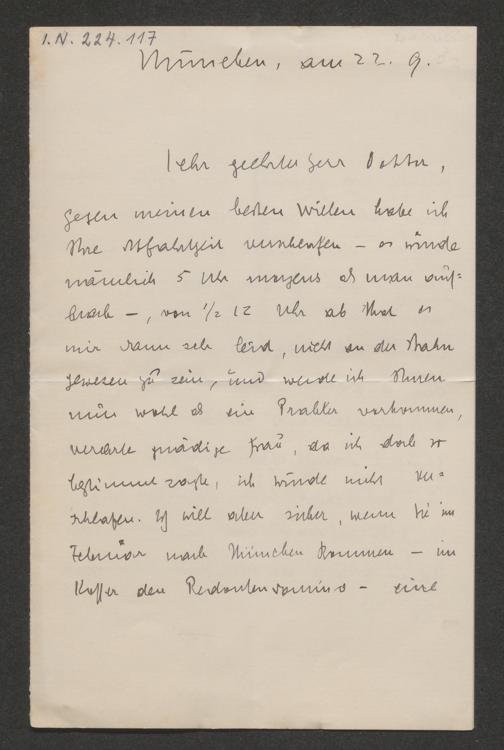 I.N. 224.117
München, am 22. 9.
Sehr geehrter Herr Doktor,
gegen meinen besten Willen habe ich
Ihre Abfahrtzeit verschlafen – es wurde
nämlich 5 Uhr morgens als man auf-
brach –, von 1/2 12 Uhr ab that es
mir dann sehr leid, nicht an der Bahn
gewesen zu sein, und werde ich Ihnen
nun wohl als ein Prahler vorkommen,
verehrte gnädige Frau, da ich doch so
bestimmt sagte, ich würde nicht ver-
schlafen. Ich will aber sicher, wenn Sie im
Februar nach München kommen – im
Koffer den Redoutendomino – eine